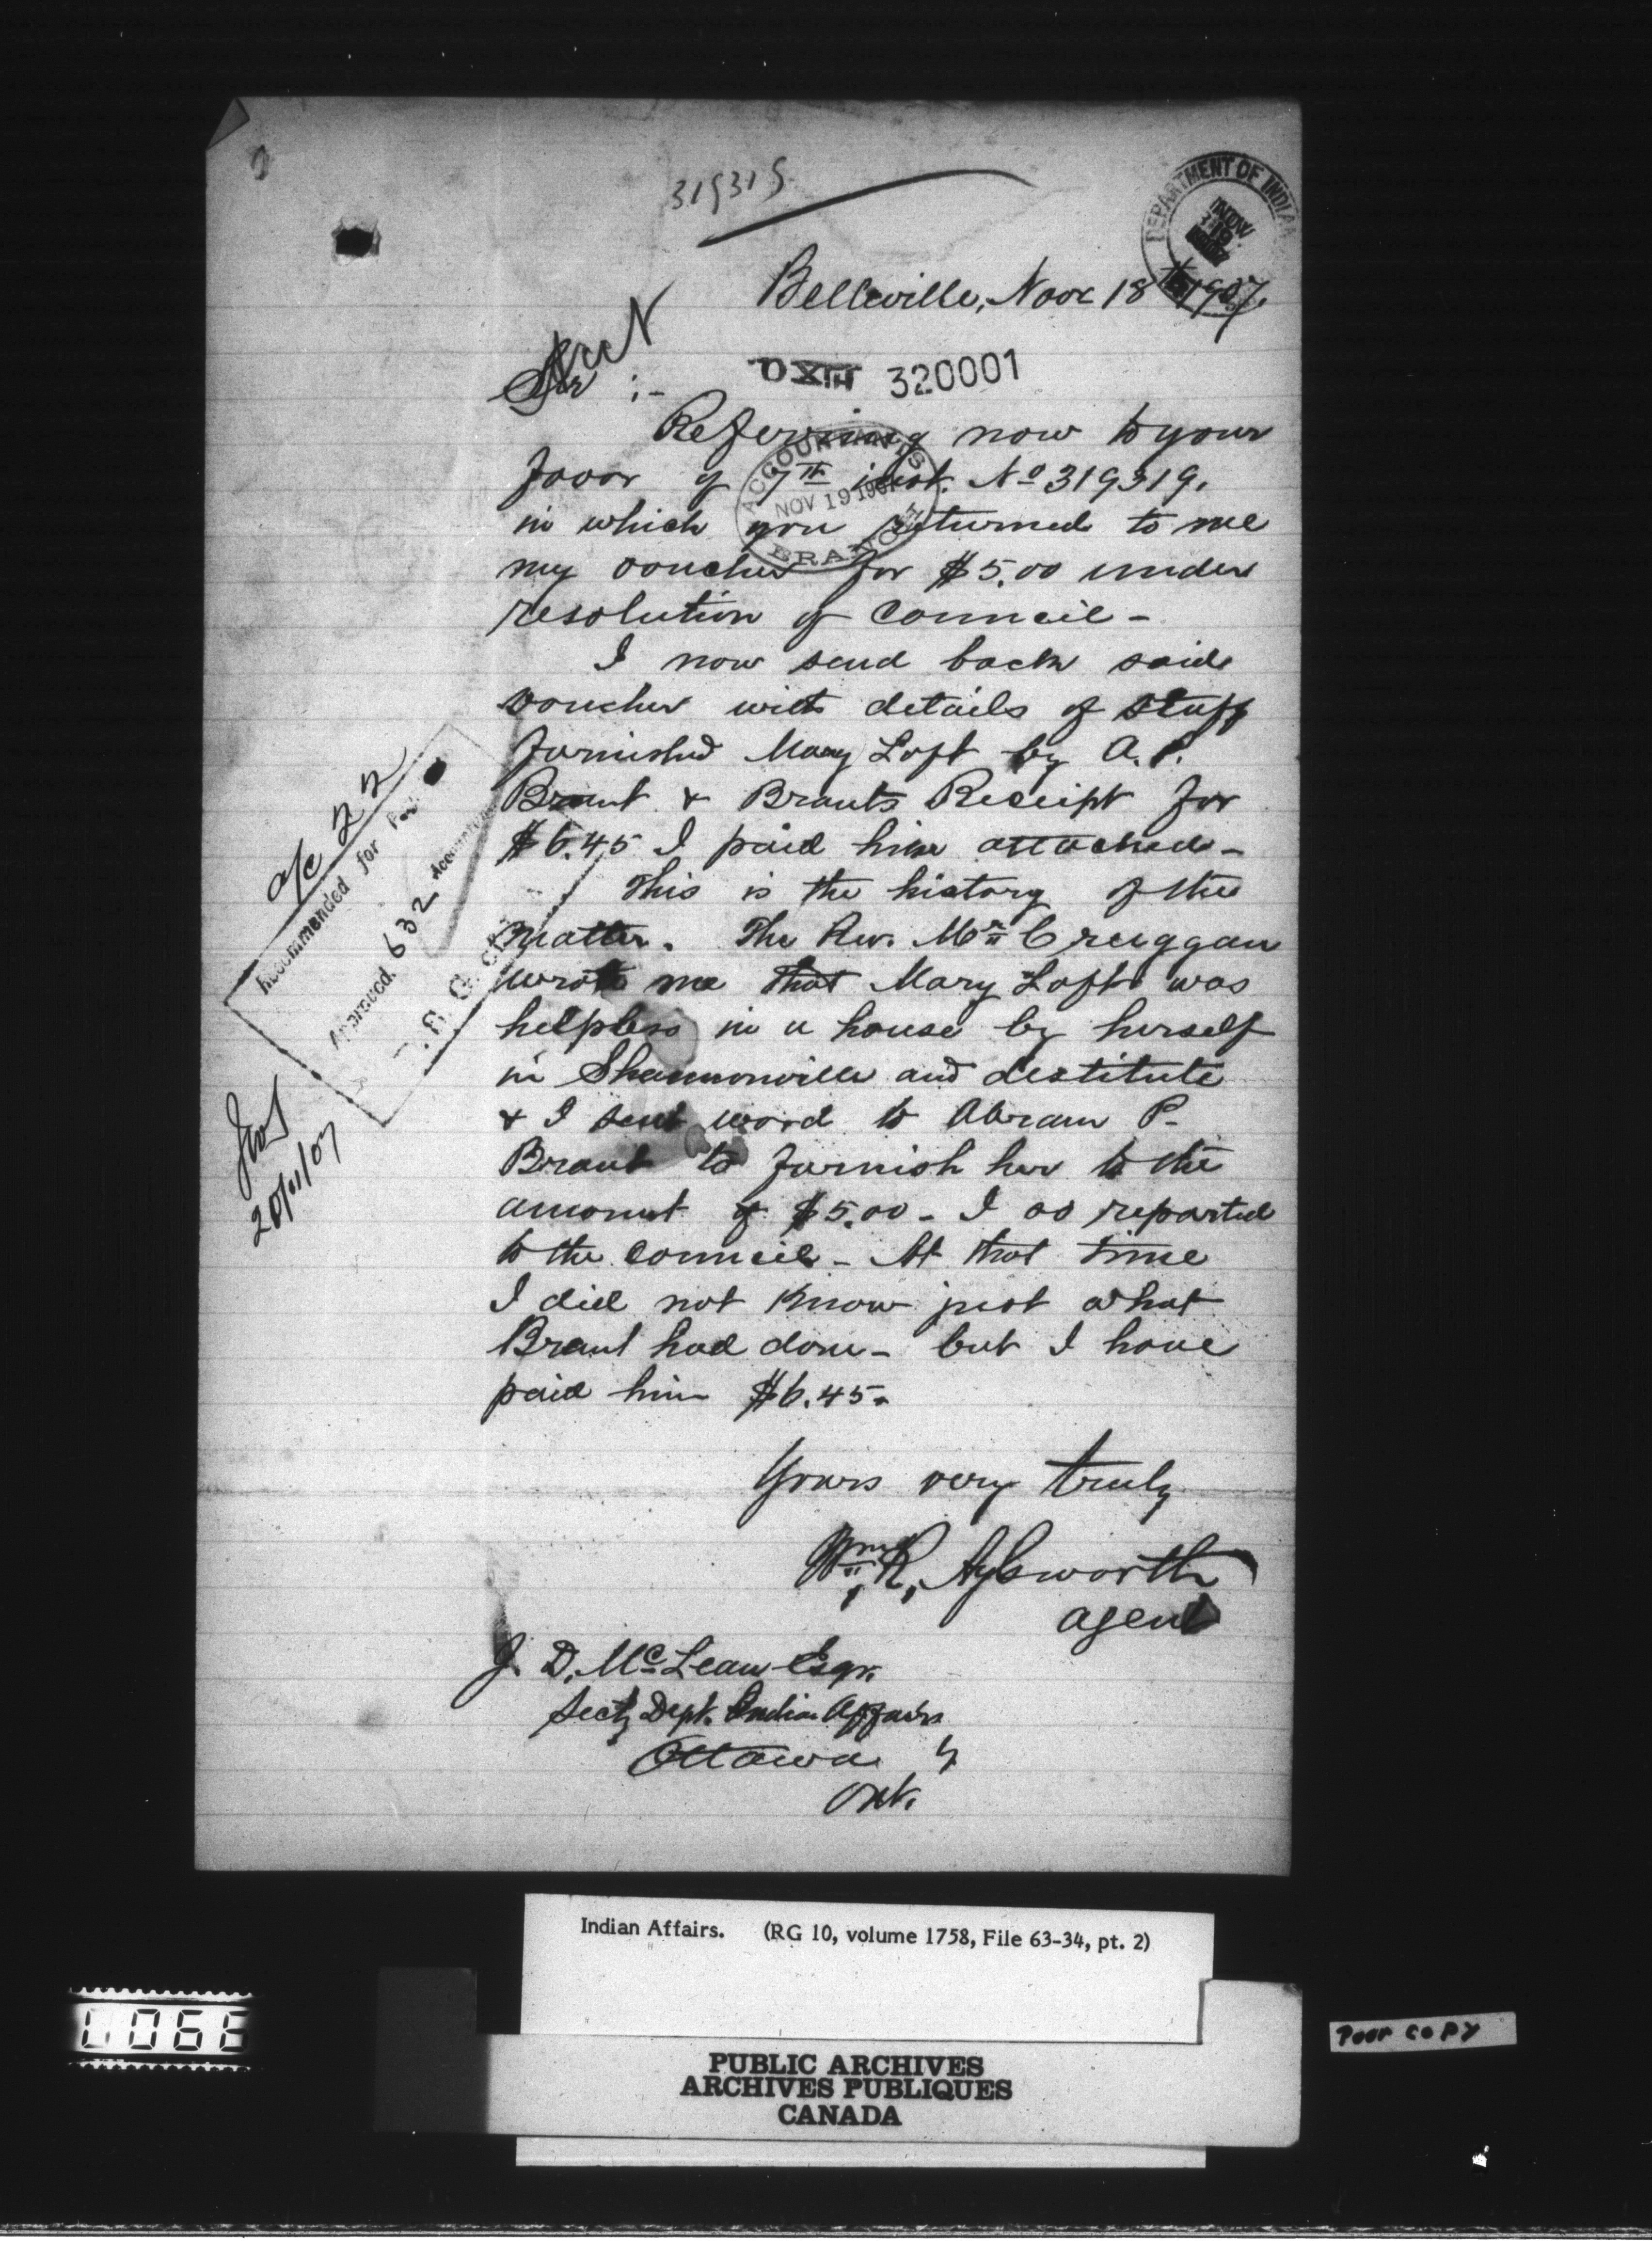 319319
DEPARTMENT OF INDIA
NOV 19 1907
Belleville, Nov 18th 1907.
Acct
Sir :-
320001
Referring now to your
favor of 7th inst. No 319319.
ACCOUNTANT'S
NOV 19 1907
BRANCH
in which you returned to me
my voucher for $5.00 under
resolution of Council -
I now send back said
voucher with details of stuff
furnished Mary Loft by A. P.
Brant & Brants Receipt for
$6.45 I paid him attached -
This is the history of the
matter. The Rev. Mr Creeggan
wrote me that Mary Loft was
helpless in a house by herself
in Shannonville and destitute
& I sent word to Abram P.
Brant to furnish her to the
amount of $5.00 - I so reported
to the Council - At that time
I did not know just what
Brant had done - but I have
paid him $6.45.
Yours very truly
Wm R. Aylsworth
agent
J. D. McLean Esqr.
Secty Dept. Indian Affairs
Ottawa
Ont.
a/c 22
Recommended for
Approved. 632 Accountant
20/11/07
Indian Affairs. (RG 10, volume 1758, File 63-34, pt. 2)
PUBLIC ARCHIVES
ARCHIVES PUBLIQUES
CANADA
Poor copy